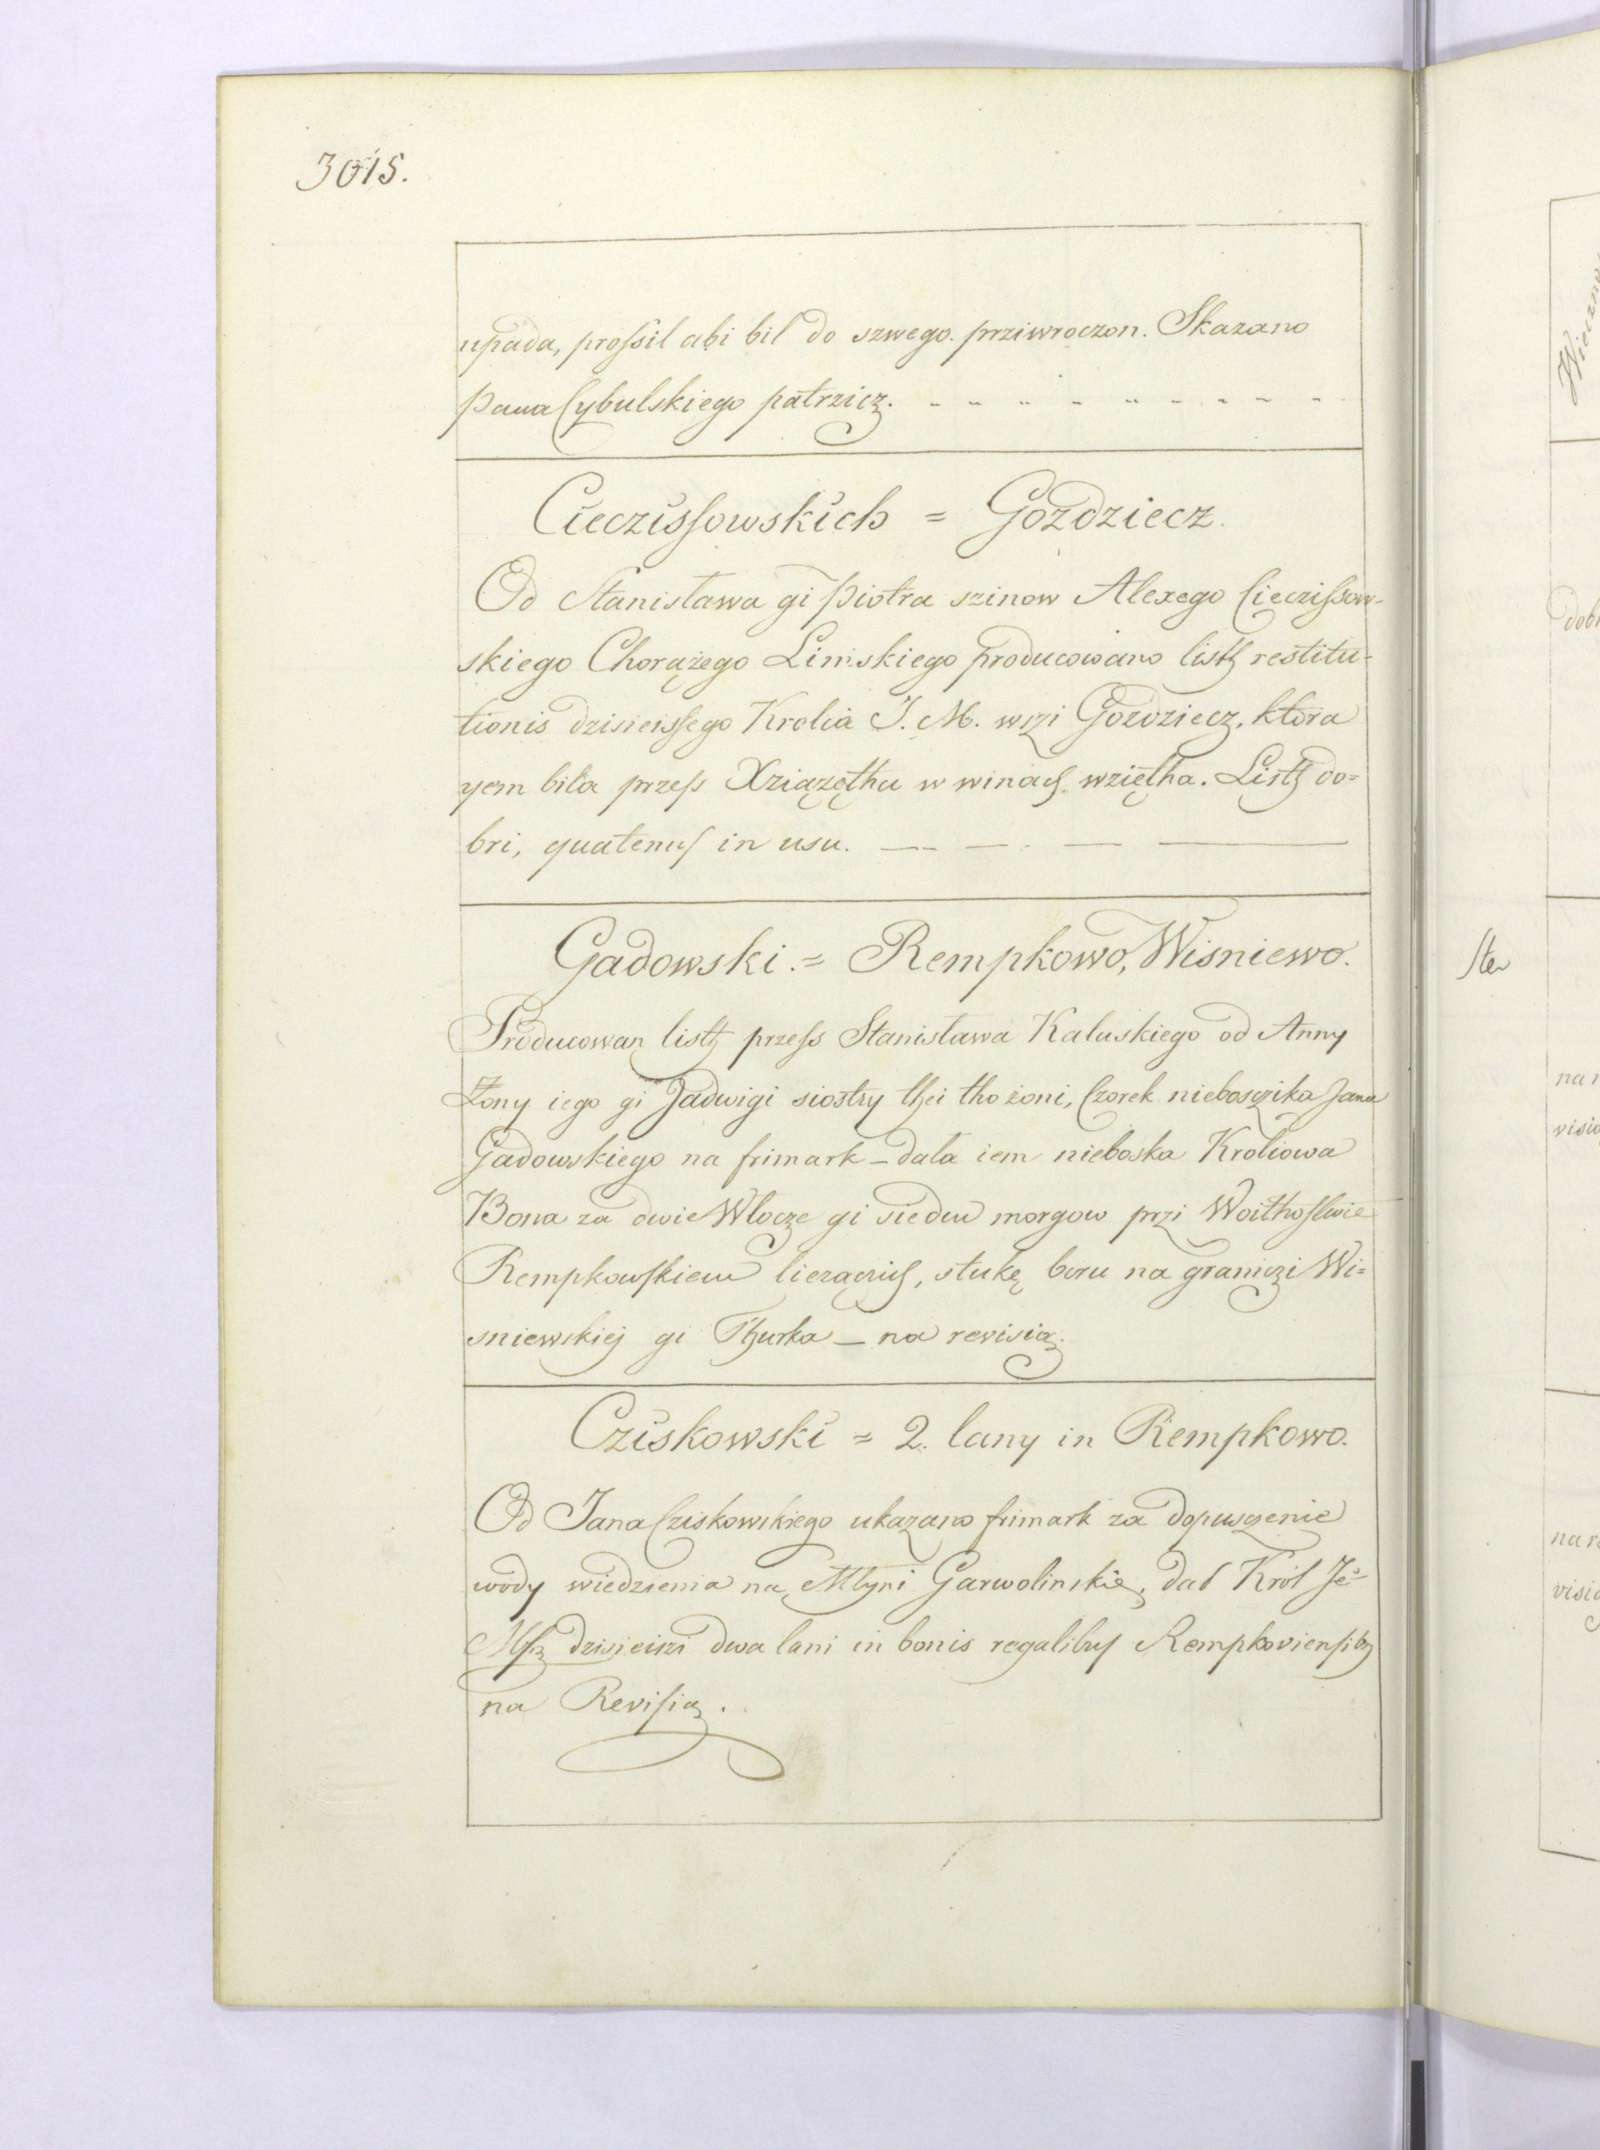 3015.
upada, prossil abi bil do szwego. prziwroczon. Skazano
Pana Cybulskiego patrzicz.
Cieczissowskich = Gozdziecz.
Od Stanisława gi Piotra szinow Alexego Cieczissow-
skiego Chorążego Liwskiego producowano listh restitu-
tionis dzisieissego Krolia J. M. wszi Gozdziecz, ktora
yem biła przess Xziążęthu w winach wzięłha. Listh do-
bri, quatenus in usu.
Gadowski. = Rempkowo, Wisniewo.
Producowan listh przess Stanisława Kaluskiego od Anny
Żony iego gi Jadwigi siostry thei tho żoni, Czorek nieboszika Jana
Gadowskiego na frimark – dała iem nieboska Kroliowa
Bona za dwie Włocze gi siedm morgow przi Woithostwie
Rempkowskiem lieżączich, stukę boru na graniczi Wi-
sniewskiej gi Thurka – na revisią.
Cziskowski = 2. lany in Rempkowo.
Od Jana Cziskowskiego ukazano frimark za dopusczenie
wody wiedzienia na Młyni Garwolinskie, dał Król Je-
Msz dzisieiszi dwa lani in bonis regalibus Rempkoviensibq
na Revisią.
Wieczno
dob
Ste
na r
visio
na r
visio